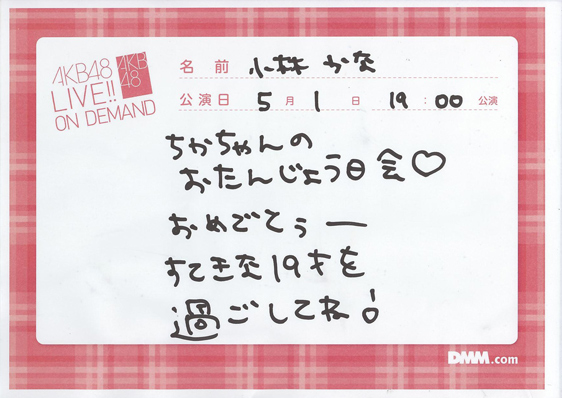 AKB48
LIVE!!
ON DEMAND
AKB
48
名前 小林 かな
公演日 5月 1日 19:00 公演
ちかちゃんの
おたんじょう日会♡
おめでてぅー
すてきな19才を
過ごしてね!
DMM.com